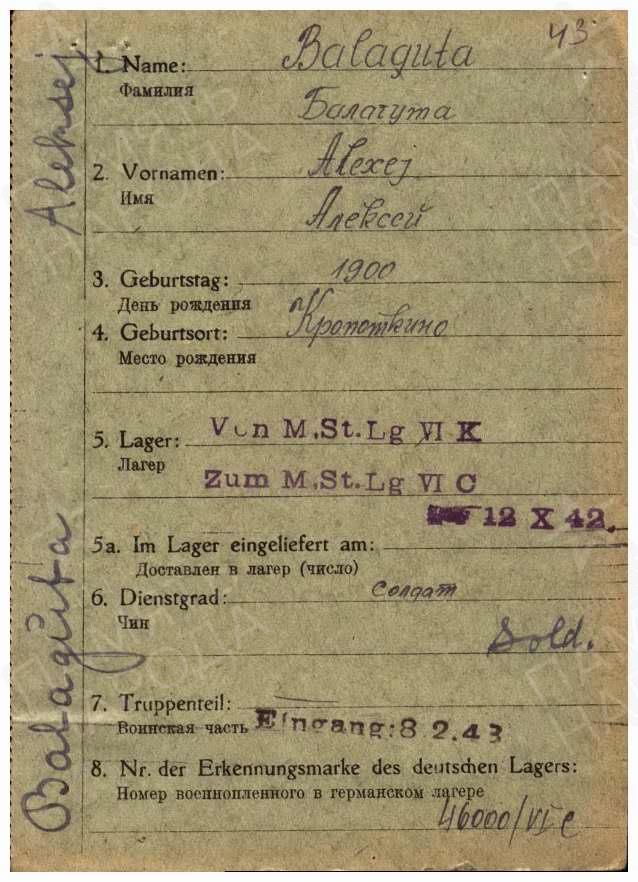 43
1. Name: Balaguta
Фамилия
Балагута
2. Vornamen: Alexej
Имя
Алексей
3. Geburtstag: 1900
День рождения
4. Geburtsort: Кропоткино
Место рождения
5. Lager: Von M.St.Lg VI K
Лагер
Zum M.St.Lg VI C
12 X 42.
5a. Im Lager eingeliefert am:
Доставлен в лагер (число)
6. Dienstgrad: Солдат
Чин
Sold.
7. Truppenteil:
Воинская часть Eingang: 8 2. 43
8. Nr. der Erkennungsmarke des deutschen Lagers:
Номер военнопленного в германском лагере
46000/VI C
Balaguta Aleksej